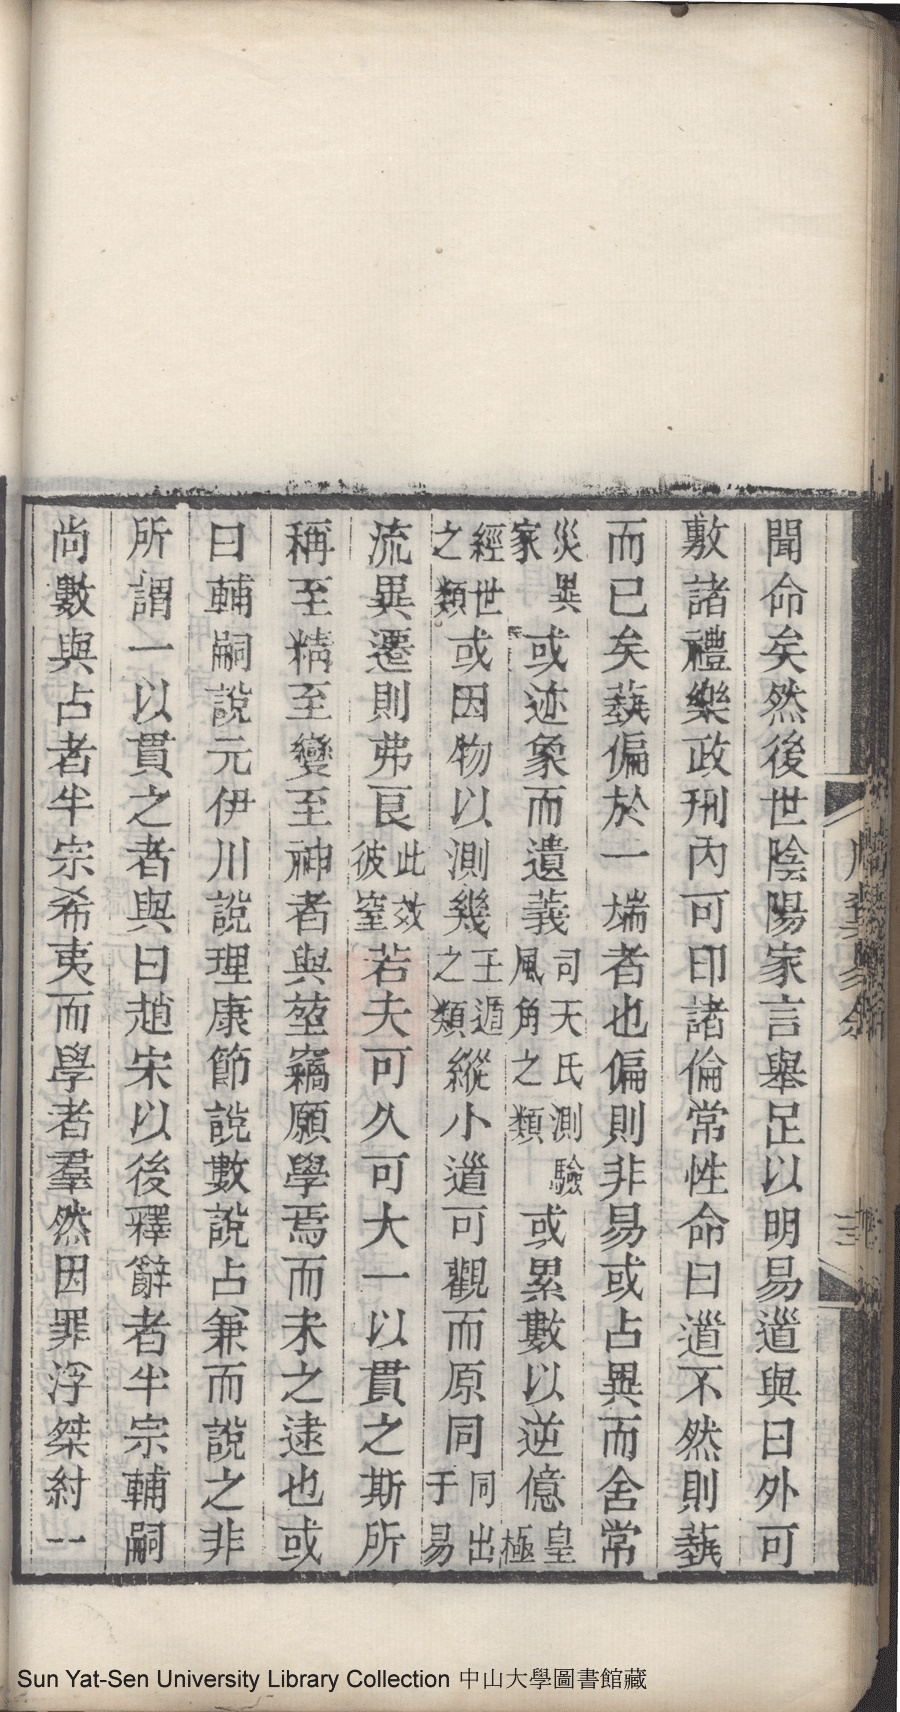 聞命矣然後世陰陽家言舉足以明易道與曰外可
敷諸禮樂政刑內可印諸倫常性命曰道不然則藝
而已矣藝偏於一端者也偏則非易或占異而舍常
災異家或迹象而遺義司天氏測驗風角之類或累數以逆億皇極
經世之類或因物以測幾壬遁之類縱小道可觀而原同同出于易
流異遷則弗良此效彼窒若夫可久可大一以貫之斯所
稱至精至變至神者與莖竊願學焉而未之逮也或
曰輔嗣說元伊川說理康節說數說占兼而說之非
所謂一以貫之者與曰趙宋以後釋辭者半宗輔嗣
尚數與占者半宗希夷而學者羣然因罪浮桀紂一
Sun Yat-Sen University Library Collection 中山大學圖書館藏